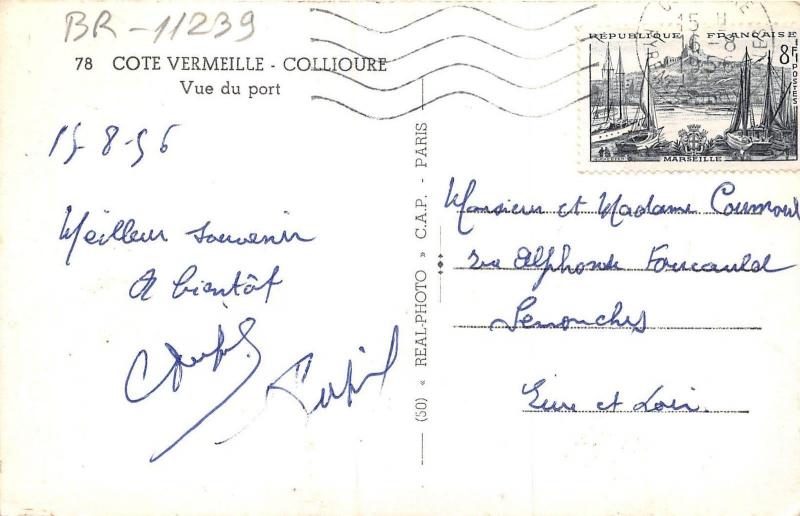 BR-11239
78 COTE VERMEILLE - COLLIOURE
Vue du port
15-8-56
Meilleur souvenir
A bientôt
(50) « REAL-PHOTO » C.A.P. - PARIS
RÉPUBLIQUE FRANÇAISE
8F
POSTES
MARSEILLE
Monsieur et Madame
rue Alphonse Foucauld
Senonches
Eure et Loir.